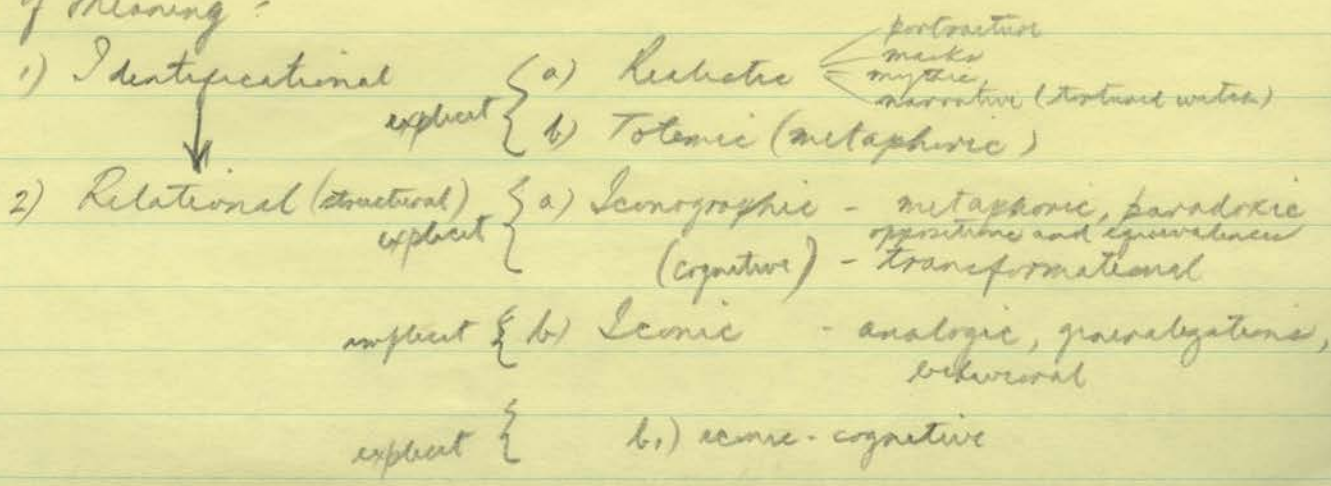 of Meaning:
portraiture
1) Identificational explicit { a) Realistic masks
mythic
narrative (tortured witch)
b) Totemic (metaphoric)
2) Relational (structural) explicit { a) Iconographic - metaphoric, paradoxic
oppositions and equivalences
(cognitive) - transformational
implicit { b) Iconic - analogic, generalizations,
behavioral
explicit { b.) iconic - cognitive